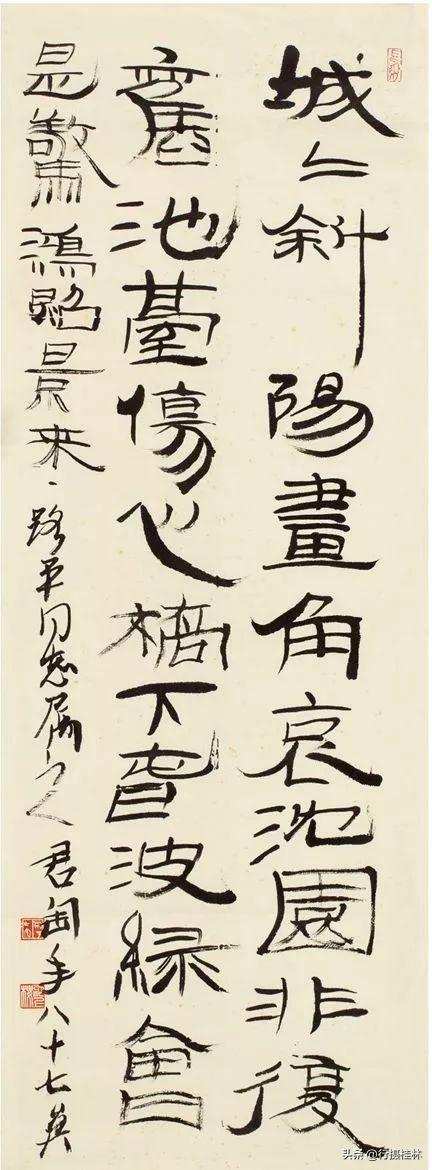 城上斜陽畫角哀沈園非復
舊池臺傷心橋下春波緑會
是驚鴻照景来、路平同志屬 君匋年八十七矣
头条@行摄桂林